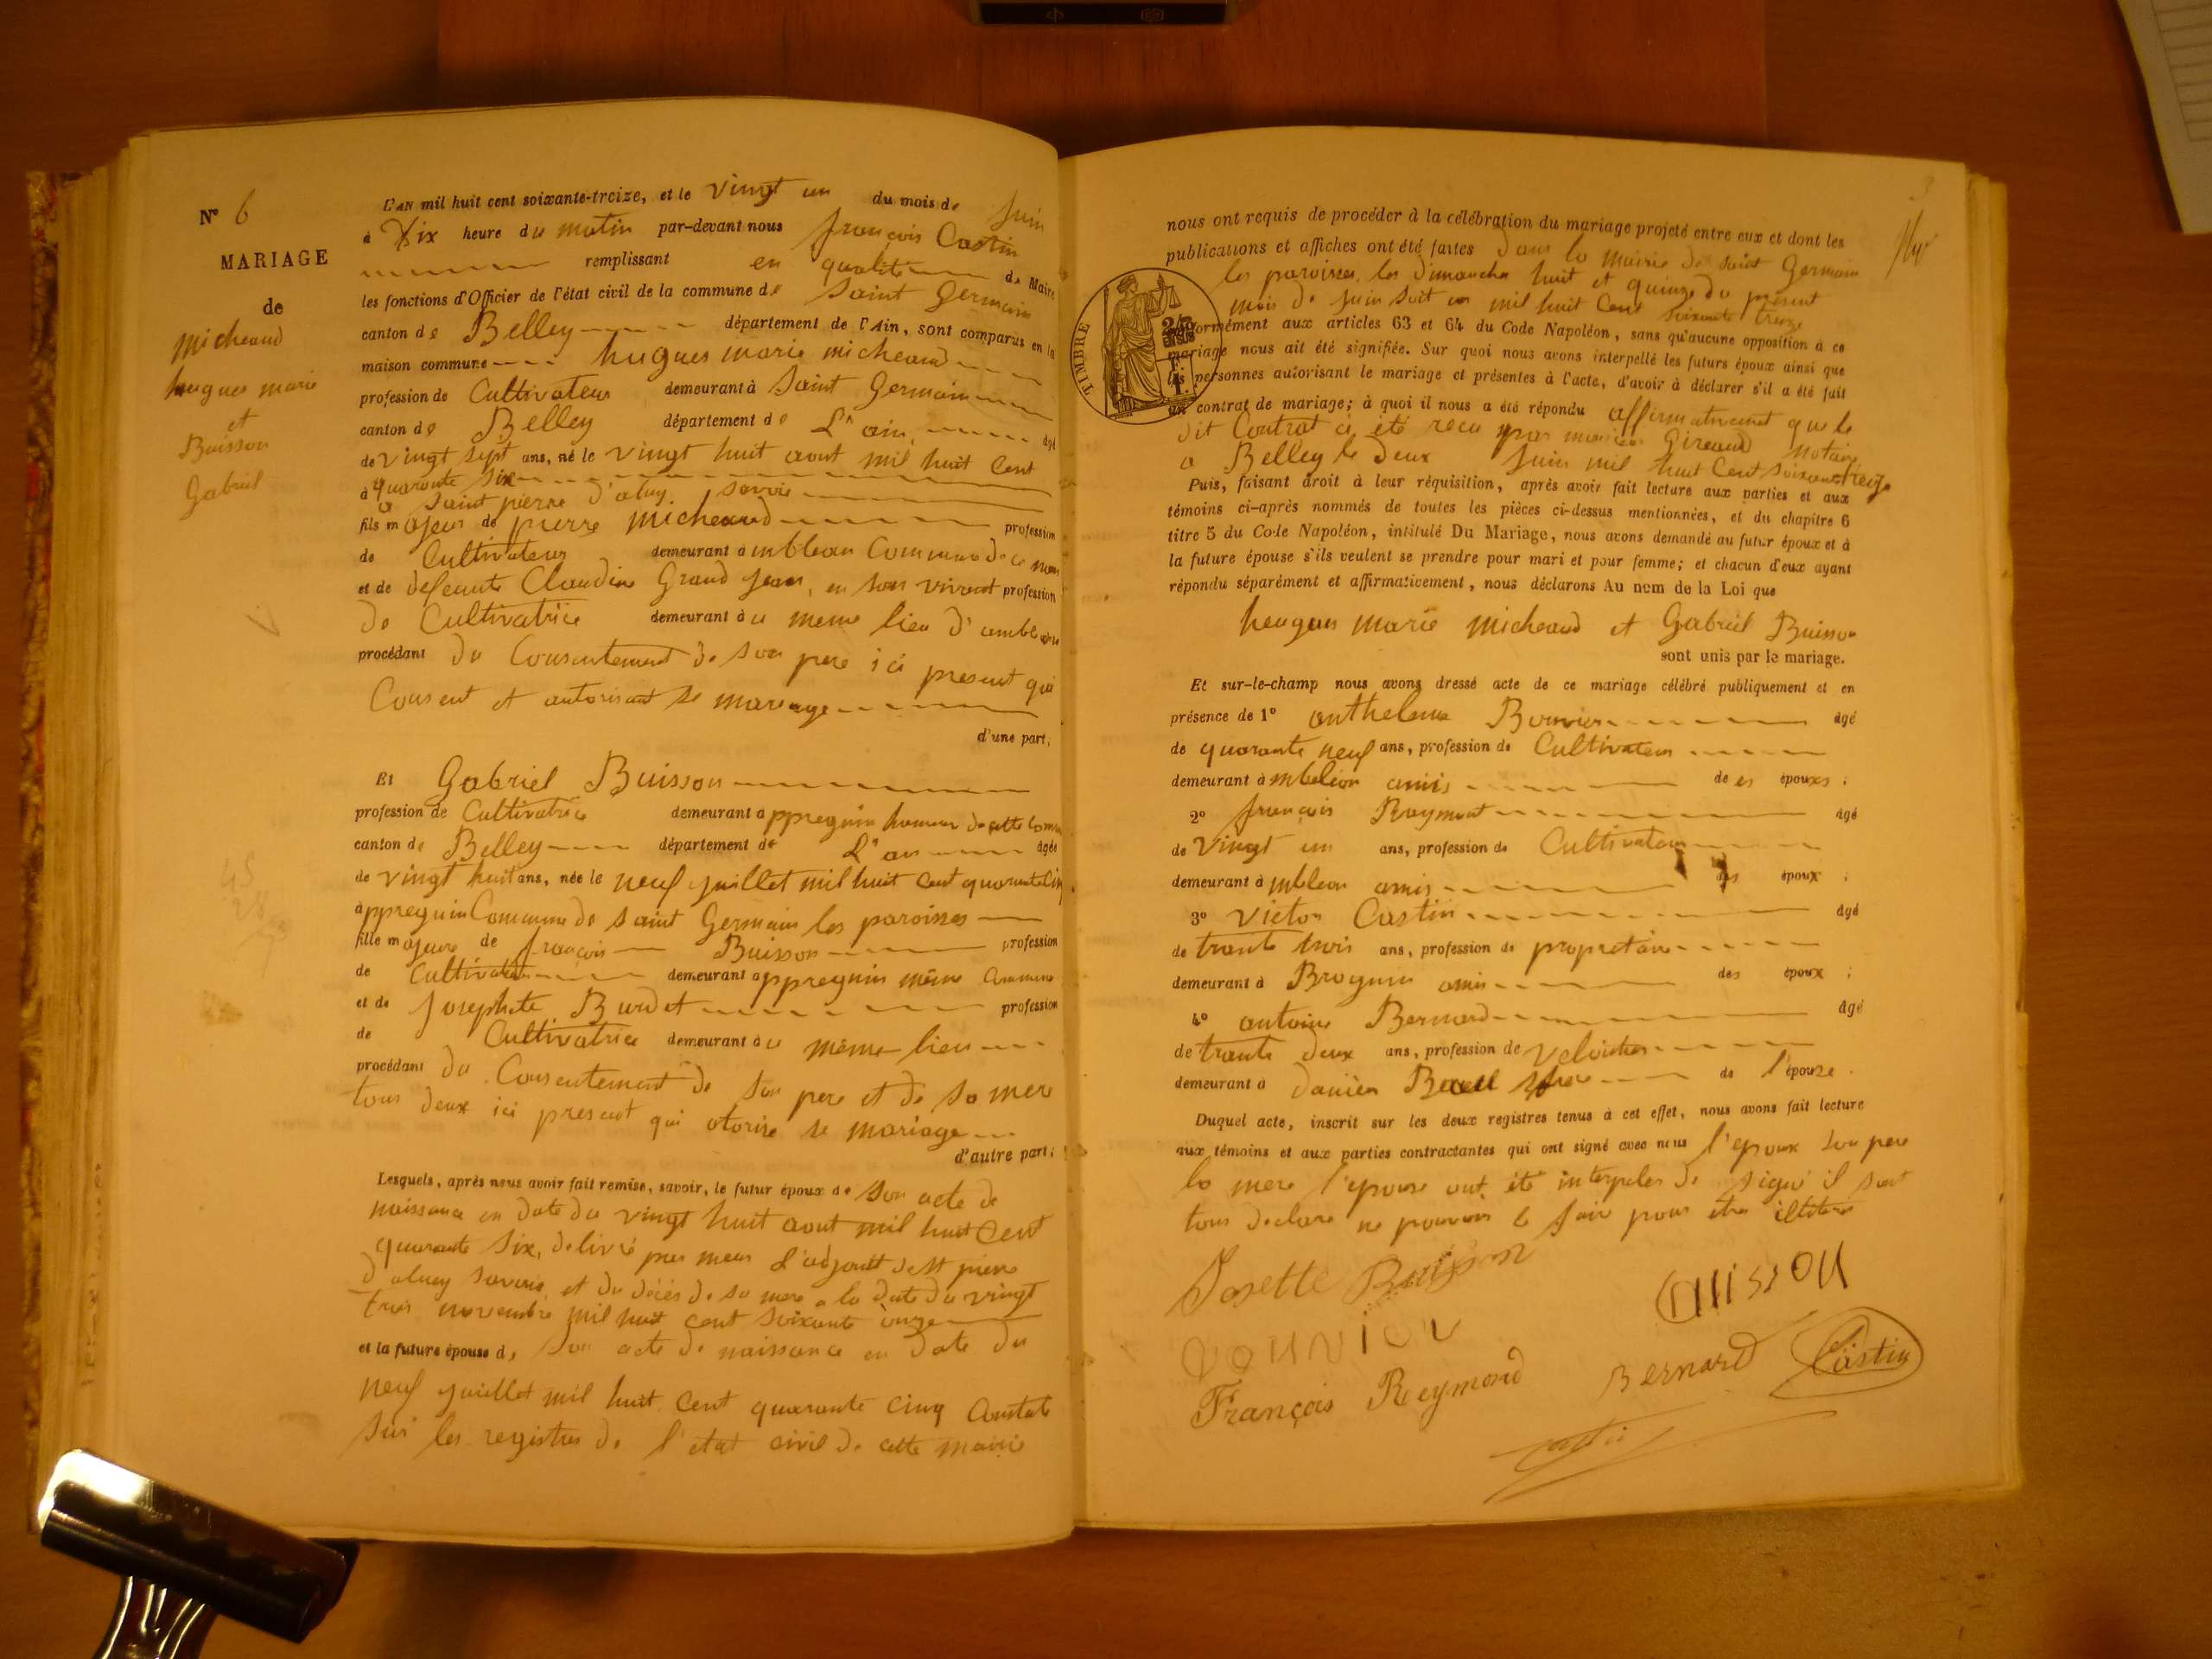 N° 6
MARIAGE
de
Micheaud
hugues marie
et
Buisson
Gabriel
L'AN mil huit cent soixante-treize, et le vingt un du mois de Juin
à Dix heure du matin par-devant nous françois Castin
remplissant en qualité de Maire
les fonctions d'Officier de l'état civil de la commune de Saint Germain
canton de Belley département de l'Ain, sont comparus en la
maison commune hugues marie micheaud
profession de Cultivateur demeurant à Saint Germain
canton de Belley département de L'ain, âgé
de vingt sept ans, né le vingt huit aout mil huit Cent
à quarante six
a Saint pierre d'aluy. Savoie
fils majeur de pierre micheaud profession
de Cultivateur demeurant à mbléon Commune de ce nom
et de defeante Claudine Grand Jean, en son vivant profession
de Cultivatrice demeurant au meme lieu d'ambleon
procédant du Consentement de son pere ici present qui
Consent et autorisant se mareage
d'une part;
Et Gabriel Buisson
profession de Cultivatrice demeurant a ppregnin hameau de cette Comm
canton de Belley département de L'ain âgée
de vingt huit ans, née le neuf juillet mil huit Cent quarante Cinq
à ppregnin Commune de Saint Germain les paroisses
fille majeure de françois Buisson profession
de Cultivateur demeurant a ppregnin même Commune
et de Josephete Burdet profession
de Cultivatrice demeurant au même lieu
procédant du Consentement de Son pere et de Sa mere
tous deux ici present qui otorise se mariage
d'autre part;
Lesquels, après nous avoir fait remise, savoir, le futur époux de Son acte de
naissance en Date du vingt huit aout mil huit Cent
quarante Six, delivré par L'adjoint de St piere
d'aluey Savoie, et du décés de sa mere a la Date du vingt
trois novembre mil huit cent Soixante onze
et la future épouse de Son acte de naissance en Date du
neuf juillet mil huit Cent quarante cinq Constaté
Sur les registres de l'état civil de cette mairie
45
28
73
3
nous ont requis de procéder à la célébration du mariage projeté entre eux et dont les
publications et affiches ont été faites Dans la mairie de Saint Germain
les paroisses, les Dimanche huit et quinze du présent
mois de Juin Soit en mil huit Cent Soixante treize
conformément aux articles 63 et 64 du Code Napoléon, sans qu'aucune opposition à ce
mariage nous ait été signifiée. Sur quoi nous avons interpellé les futurs époux ainsi que
les personnes autorisant le mariage et présentes à l'acte, d'avoir à déclarer s'il a été fait
un contrat de mariage; à quoi il nous a été répondu affirmativement que le
dit Contrat a été recu par Gireaud Notaire
a Belley le Deux Juin mil huit Cent Soixante treize
TIMBRE
Puis, faisant droit à leur réquisition, après avoir fait lecture aux parties et aux
témoins ci-après nommés de toutes les pièces ci-dessus mentionnées, et du chapitre 6
titre 5 du Code Napoléon, intitulé Du Mariage, nous avons demandé au futur époux et à
la future épouse s'ils veulent se prendre pour mari et pour femme; et chacun d'eux ayant
répondu séparément et affirmativement, nous déclarons Au nom de la Loi que
heugues marie Micheaud et Gabriel Buisson
sont unis par le mariage.
Et sur-le-champ nous avons dressé acte de ce mariage célébré publiquement et en
présence de 1° anthelme Bournier âgé
de quarante neuf ans, profession de Cultivateur
demeurant à mbléon amis de es époux ;
2° françois Raymont âgé
de Vingt un ans, profession de Cultivateur
demeurant à mbleon amis des époux ;
3° Victor Castin âgé
de trante trois ans, profession de propretaire
demeurant à Brognin amis des époux ;
4° antoine Bernard âgé
de trante deux ans, profession de
demeurant à de l'épouze.
Duquel acte, inscrit sur les deux registres tenus à cet effet, nous avons fait lecture
aux témoins et aux parties contractantes qui ont signé avec nous l'epoux Son pere
la mere l'epouse ont été interpeler de signé il sont
tous declare ne pouvoir le fair pour etre illitere
Josette Buisson
Buisson
Bournier
François Reymond Bernard Castin
Castin